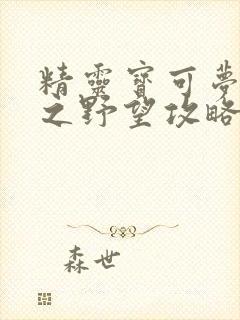 精靈寶可夢
之野望攻略
森世